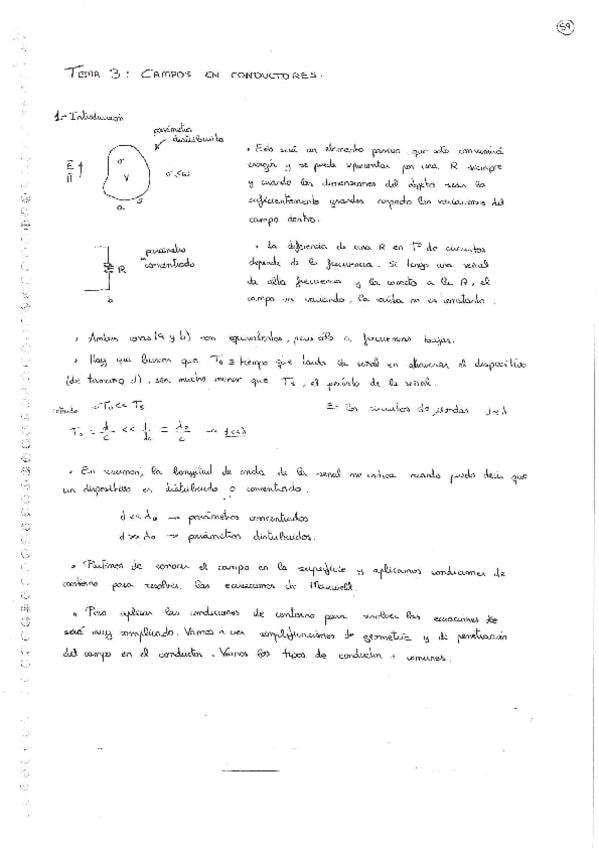 59
TEMA 3: CAMPOS EN CONDUCTORES.
1.- Introducción
parámetro
distribuido
E
H
σ
V
a
S
• Esto será un elemento pasivo que sólo consumirá
energía y se puede representar por una R siempre
y cuando las dimensiones del objeto sean lo
suficientemente grandes respecto las variaciones del
campo dentro.
parámetro
concentrado
R
b
• La diferencia de una R en Tª de circuitos
depende de la frecuencia. Si tengo una señal
de alta frecuencia y la conecto a la R, el
campo va variando, la caída no es constante.
• Ambos casos (a y b) son equivalentes, pero sólo a frecuencias bajas.
• Hay que buscar que T₀ ≡ tiempo que tarda la señal en atravesar el dispositivo
(de tamaño d), sea mucho menor que Ts, el período de la señal.
T₀ << Ts
los circuitos de d≈λ
d << λ₀ → parámetros concentrados
• En resumen, la longitud de onda de la señal me indica cuando puedo decir que
un dispositivo es distribuido o concentrado.
d >> λ₀ → parámetros distribuidos.
• Partimos de conocer el campo en la superficie y aplicamos condiciones de
contorno para resolver las ecuaciones de Maxwell.
• Pero aplicar las condiciones de contorno para resolver las ecuaciones de
será muy complicado. Vamos a ver simplificaciones de geometría y de penetración
del campo en el conductor. Veamos los tipos de conductor + comunes.